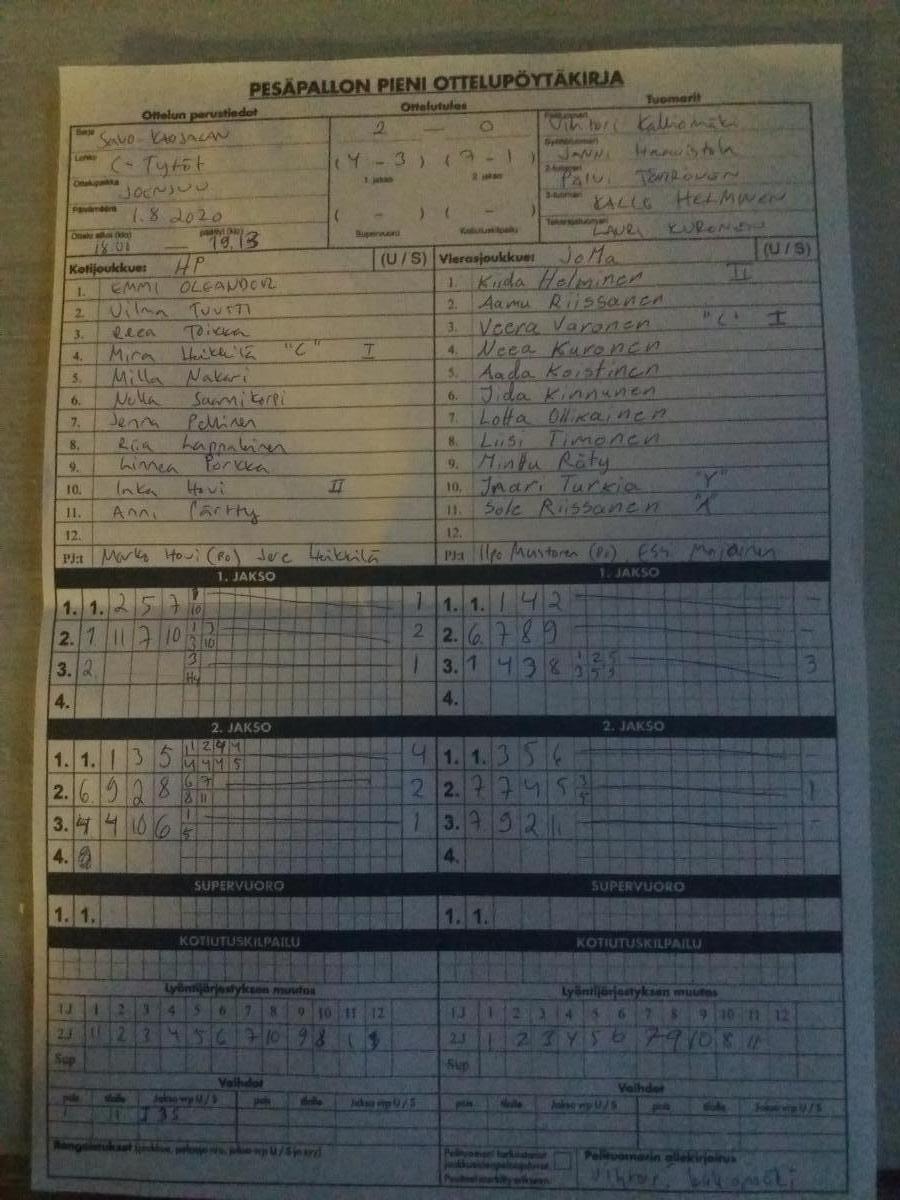 PESÄPALLON PIENI OTTELUPÖYTÄKIRJA
Ottelun perustiedot Ottelutulos Tuomarit
Sarja SAVO-KARJALAN
Lohko C-Tytöt
Ottelupaikka JOENSUU
Päivämäärä 1.8.2020
Ottelu alkoi (klo) 18.01 — päättyi (klo) 19.13
2 — 0
(4 - 3) (7 - 1)
1. jakso 2. jakso
( - ) ( - )
Supervuoro Kotiutuskilpailu
Pelituomari Vihtori Kalliomäki
Syöttötuomari JANNI
2-tuomari PÄIVI
3-tuomari KALLE HELMINEN
Takarajatuomari LAURI KURONEN
Kotijoukkue: HP (U / S)
1. EMMI OLEANDER
2. Vilma TUUTTI
3. Reea Toikka
4. Mira Heikkilä "C" I
5. Milla Nakari
6. Nella Saarnikorpi
7. Jenna Peltinen
8. Riia Lappalainen
9. Linnea Porkka
10. Inka Hovi II
11. Anni Pärtty
12.
PJ:t Marko Hovi (PJ) Jere Heikkilä
Vierasjoukkue: JoMa (U / S)
1. Kiida Helminen II
2. Aamu Riissanen
3. Veera Varonen "C" I
4. Neea Kuronen
5. Aada Koistinen
6. Iida Kinnunen
7. Lotta Ollikainen
8. Liisi Timonen
9. Minttu Räty
10. Inari Turkia "Y"
11. Sole Riissanen "A"
12.
PJ:t Ilpo Mustonen (PJ)
1. JAKSO 1. JAKSO
1. 1. 2 5 7 1 1. 1. 1 4 2 -
10
2. 1 11 7 10 1 3 2 2. 6 7 8 9 -
3 10
3. 2 3 1 3. 1 4 3 8 1 2 5 3
Hy 3 5 3
4. 4.
2. JAKSO 2. JAKSO
1. 1. 1 3 5 1 2 4 4 4 1. 1. 3 5 6 -
4 4 4 5
2. 6 9 2 8 6 7 2 2. 7 7 4 5 3 1
8 11 5
3. 4 4 10 6 1 1 3. 7 9 2 11 -
5
4. 4.
SUPERVUORO SUPERVUORO
1. 1. 1. 1.
KOTIUTUSKILPAILU KOTIUTUSKILPAILU
Lyöntijärjestyksen muutos Lyöntijärjestyksen muutos
1J 1 2 3 4 5 6 7 8 9 10 11 12 1J 1 2 3 4 5 6 7 8 9 10 11 12
2J 11 2 3 4 5 6 7 10 9 8 1 2J 1 2 3 4 5 6 7 9 10 8 11
Sup Sup
Vaihdot Vaihdot
pois tilalle Jakso vrp U / S pois tilalle Jakso vrp U / S pois tilalle Jakso vrp U / S pois tilalle Jakso vrp U / S
1 11 I 3 S
Rangaistukset (joukkue, pelaaja nro, jakso vrp U / S ja syy)
Pelituomari tarkastanut
Pelituomarin allekirjoitus